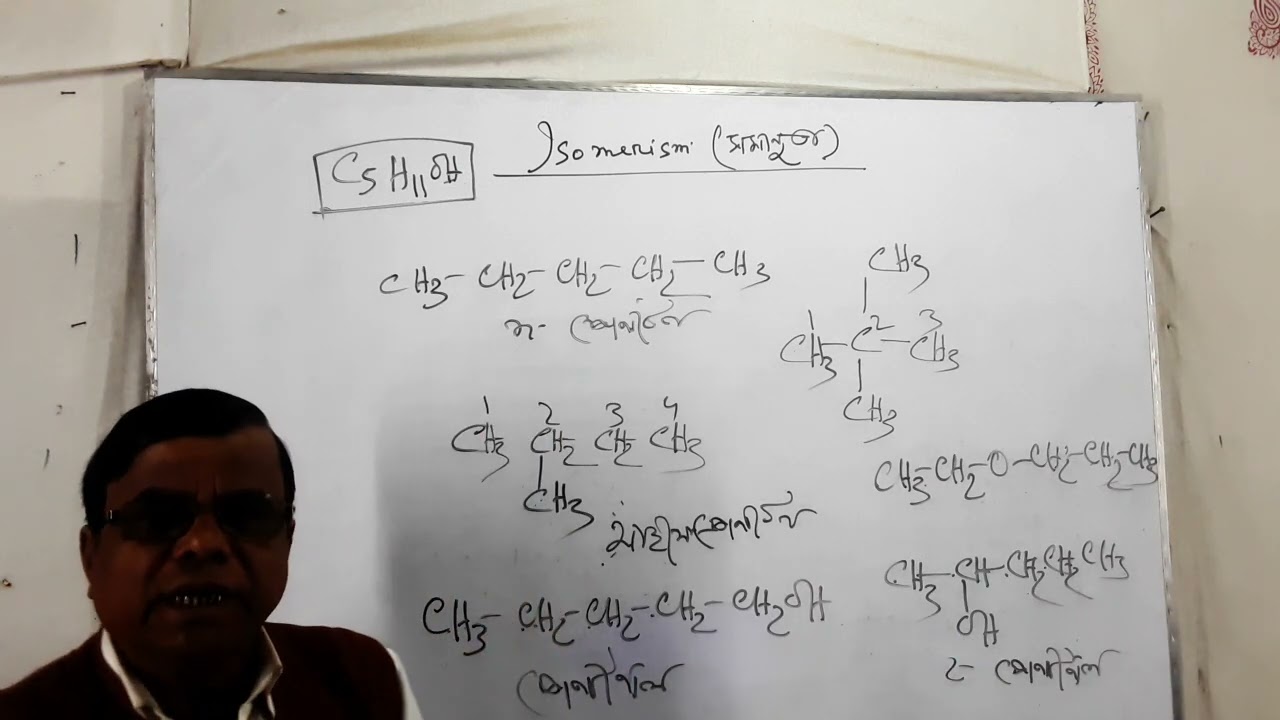 Isomerism (সমানুতা)
C5H11OH
CH3- CH2- CH2- CH2- CH3
n- পেনটেন
CH3
1 2 3
CH3- C -CH3
CH3
1 2 3 4
CH3 CH2 CH2 CH3
CH3
আইসোপেনটেন
CH3-CH2-O-CH2-CH2-CH3
CH3-CH-CH2CH2CH3
OH
2- পেনটানল
CH3- CH2- CH2- CH2- CH2OH
পেনটানল